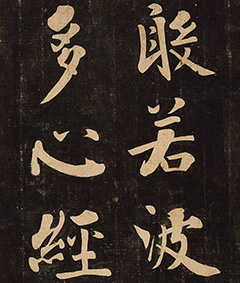 般若波
多心經